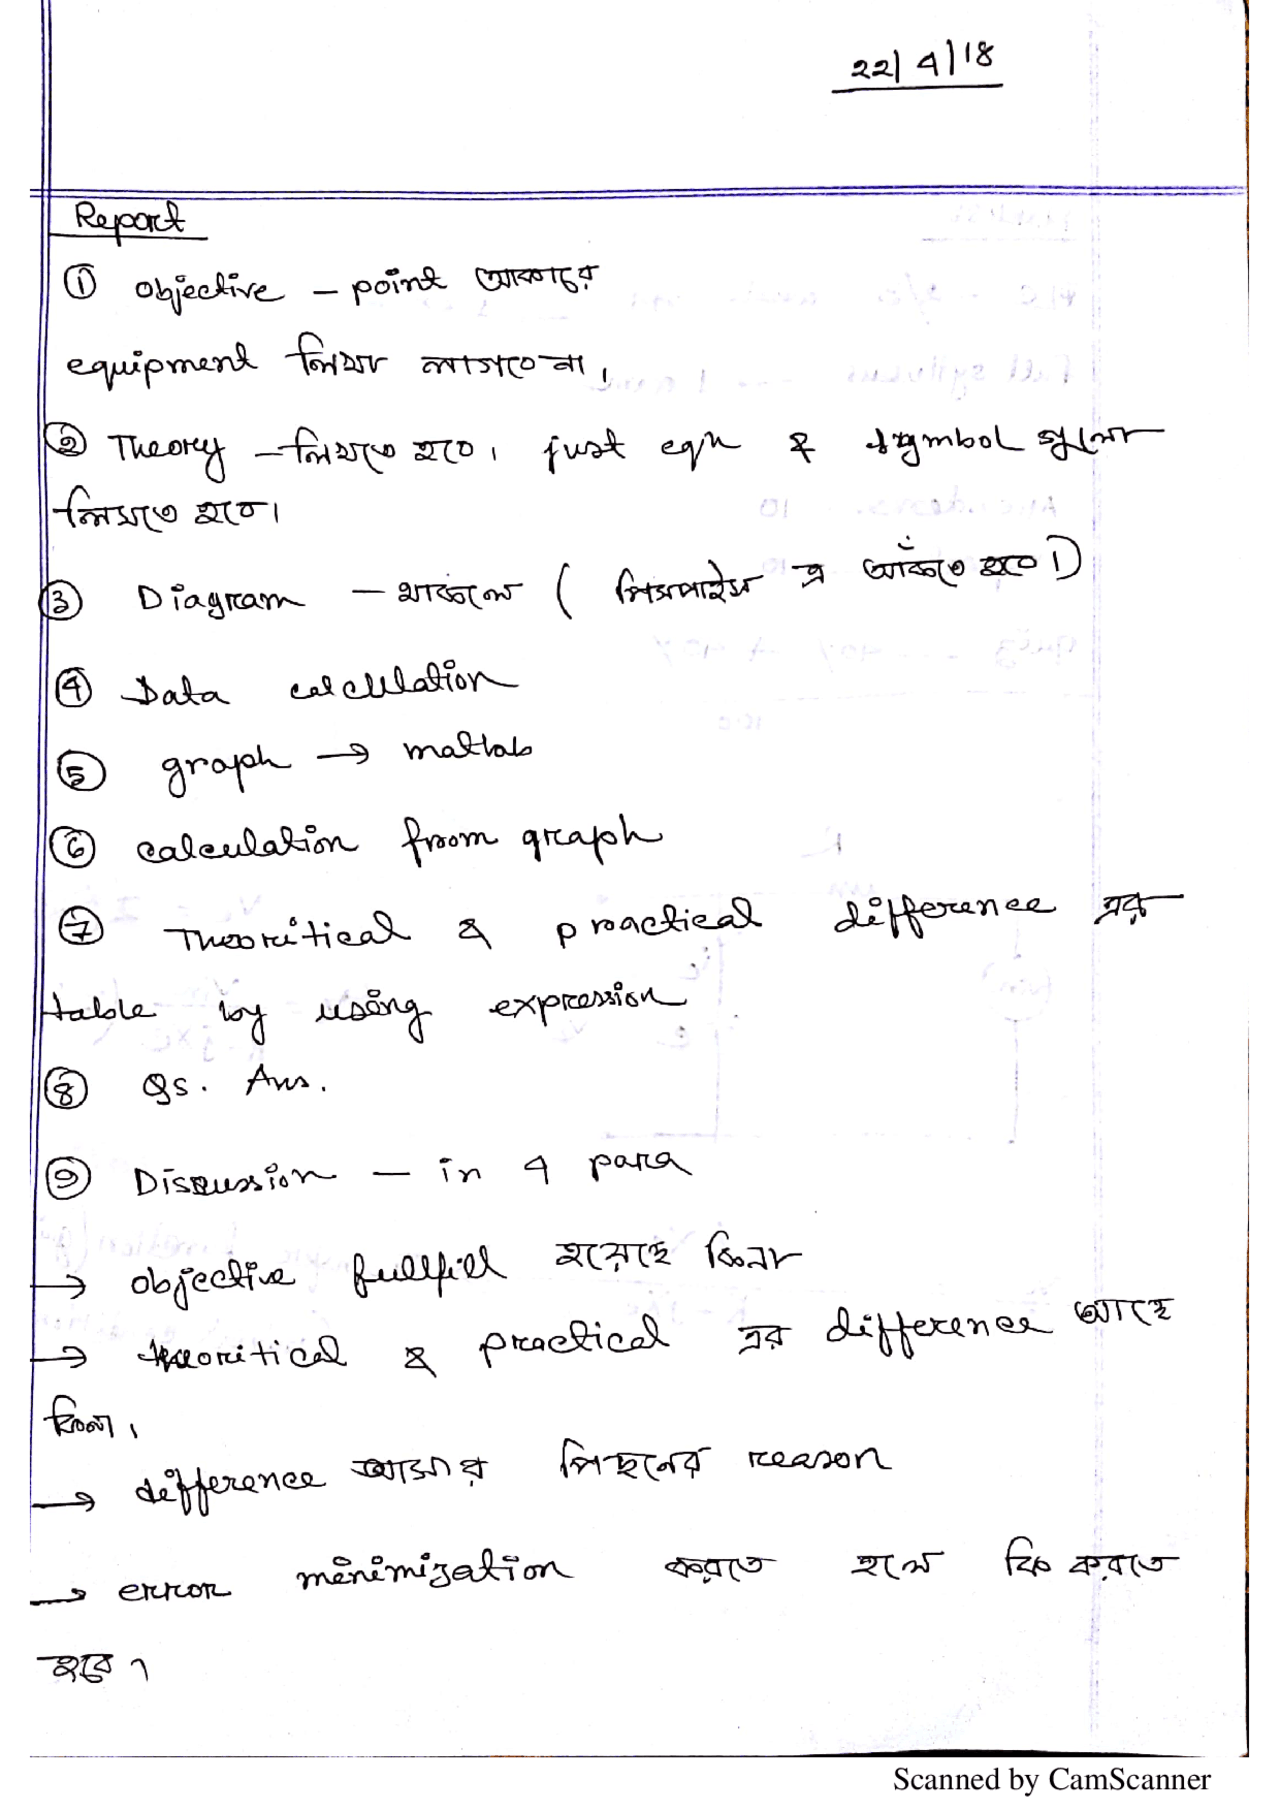 22/4/18
Report
① objective – point আকারে
equipment লিখা লাগবে না।
② Theory – লিখতে হবে। just eqn & symbol গুলো
লিখতে হবে।
③ Diagram – থাকলে ( পিসপাইস এ আঁকতে হবে।)
④ Data calculation
⑤ graph → matlab
⑥ calculation from graph
⑦ Theoritical & practical difference এর
table by using expression
⑧ Qs. Ans.
⑨ Discussion – in 4 para
→ objective fullfill হয়েছে কিনা
→ theoritical & practical এর difference আছে
কিনা।
→ difference আসার পিছনের reason
→ error minimization করতে হলে কি করতে
হবে।
Scanned by CamScanner